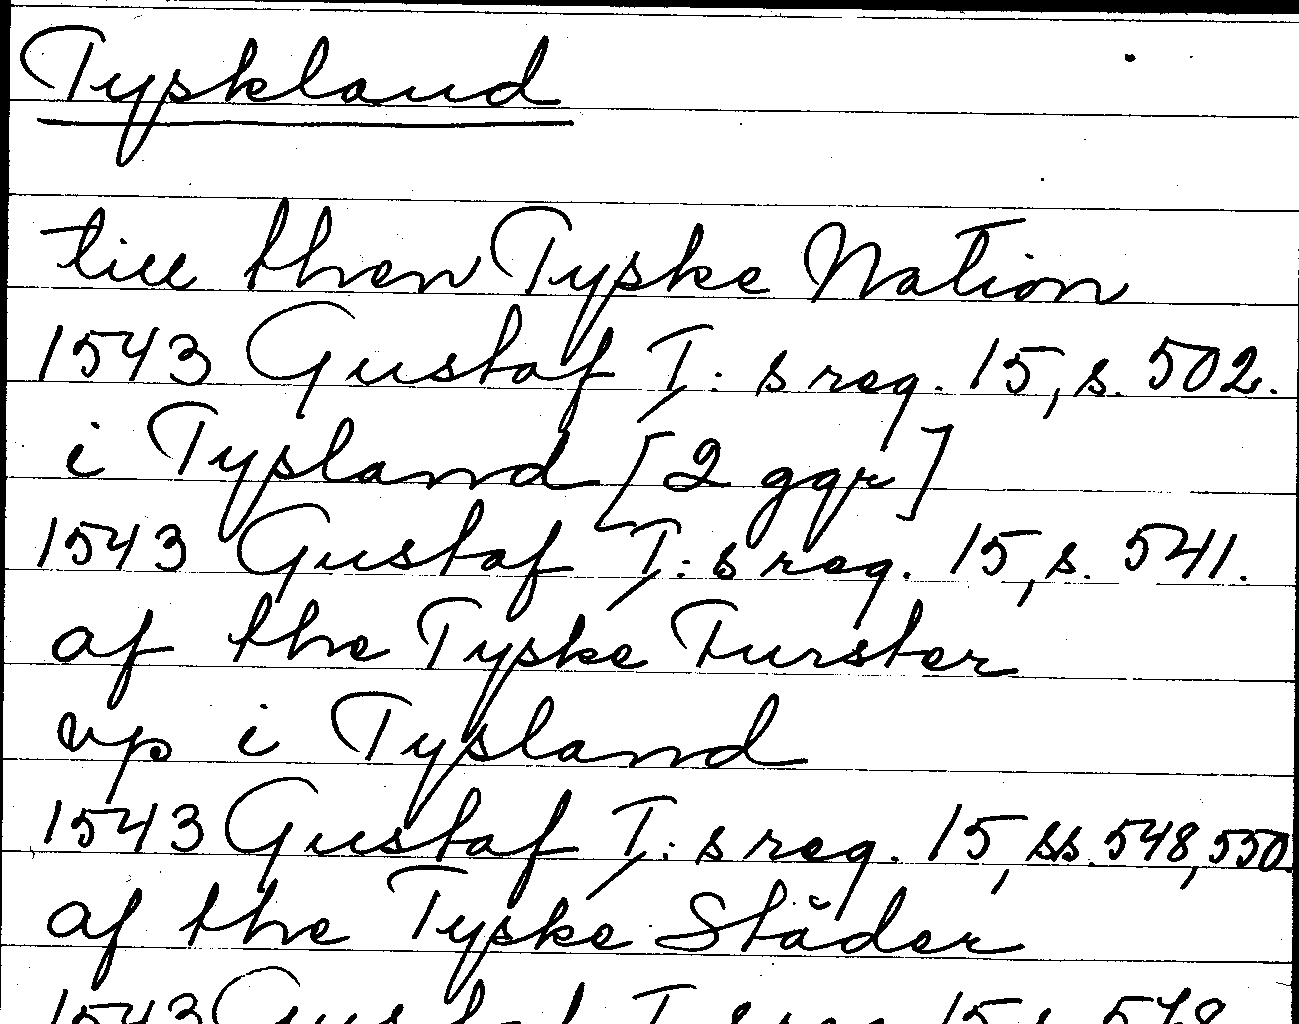 Tyskland
till then Tyske Nation
1543 Gustaf I:s reg. 15, s. 502.
i Tysland [2 ggr]
1543 Gustaf I:s reg. 15, s. 541.
af the Tyske Furster
vp i Tysland
1543 Gustaf I:s reg. 15, ss. 548, 550
af the Tyske Städer
1543 Gustaf I:s reg. 15, s. 548